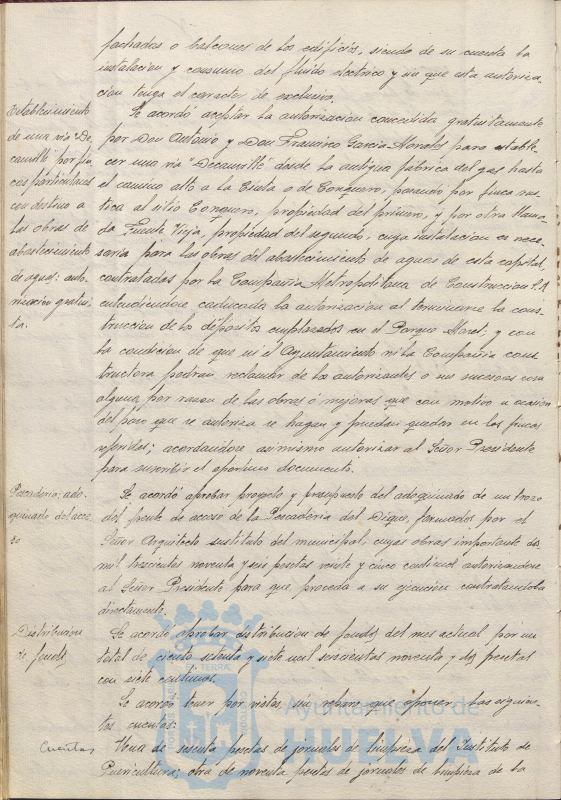 fachadas o balcones de los edificios, siendo de su cuenta la
instalacion y consumo del fluido electrico y sin que esta autoriza-
cion tenga el caracter de exclusiva.
Establecimiento
de una via "De-
cauville" por fin-
cas particulares
con destino a
las obras de
abastecimiento
de aguas: auto-
rizacion gratui-
ta.
Se acordó aceptar la autorizacion concedida gratuitamente
por Don Antonio y Don Francisco Garcia Morales para estable-
cer una via "Decauville" desde la antigua fábrica del gas hasta
el camino alto a la Cinta o de Conquero, pasando por finca rus-
tica al sitio Conquero, propiedad del primero, y por otra llama-
da Fuente Vieja, propiedad del segundo, cuya instalacion es nece-
saria para las obras del abastecimiento de aguas de esta capital,
contratadas por la Compañia Metropolitana de Construccion S.A
entendiendose caducada la autorizacion al terminarse la cons-
truccion de los depósitos emplazados en el Parque Moret; y con
la condicion de que ni el Ayuntamiento ni la Compañia cons-
tructora podrán reclamar de los autorizantes o sus sucesores cosa
alguna por razon de las obras ó mejoras que con motivo u ocasion
del paso que se autoriza se hagan y puedan quedar en las fincas
referidas; acordandose asimismo autorizar al Señor Presidente
para suscribir el oportuno documento.
Pescaderia: ado-
quinado del acce-
so
Se acordó aprobar proyecto y presupuesto del adoquinado de un trozo
del frente de acceso de la Pescaderia del Dique, formados por el
Señor Arquitecto sustituto del municipal, cuyas obras importante dos
mil trescientas noventa y seis pesetas veinte y cinco centimos autorizandose
al Señor Presidente para que proceda a su ejecucion contratandola
directamente.
Distribucion
de fondos
Se acordó aprobar distribucion de fondos del mes actual por un
total de ciento setenta y siete mil seiscientas noventa y dos pesetas
con siete centimos.
Se acordó tener por vistas sin reparo que oponer las siguien-
tes cuentas:
Cuentas
Una de sesenta pesetas de jornales de limpieza del Instituto de
Puericultura; otra de noventa pesetas de jornales de limpieza de la
Ayuntamiento de
HUELVA